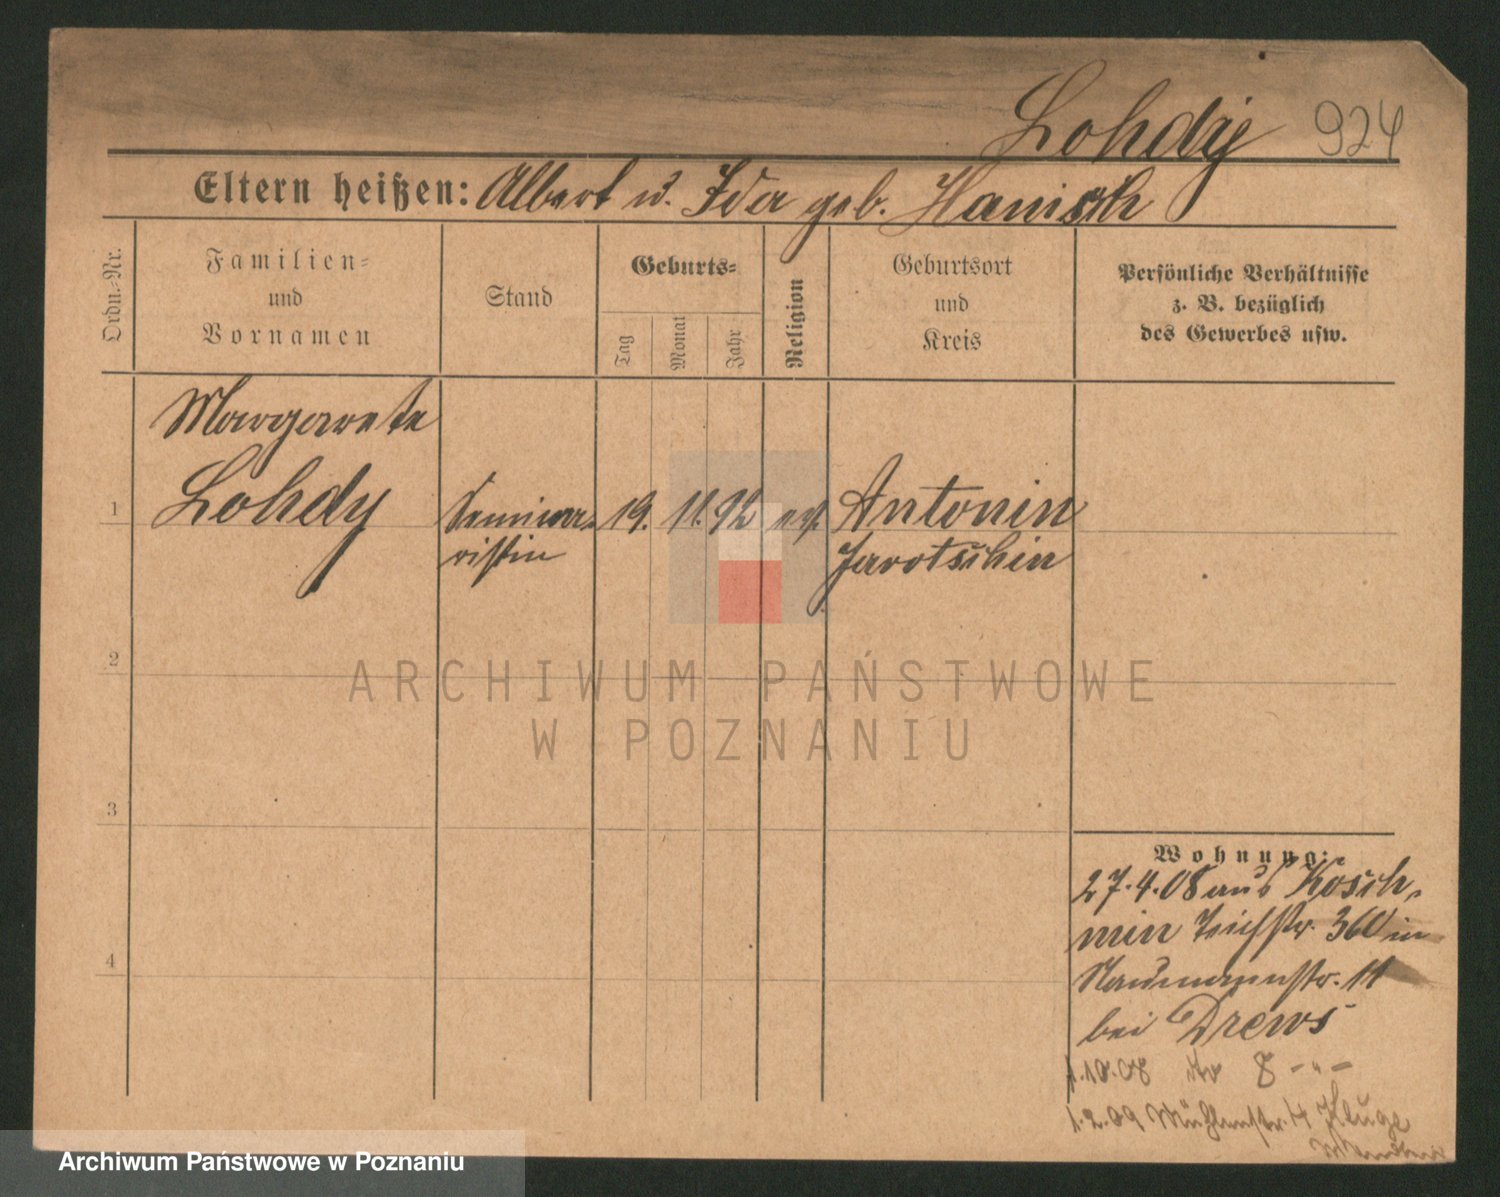 Lohdÿ 924
Eltern heißen: Albert u. Ida geb. Hanisch
Ordn.-Nr.
Familien- und Vornamen
Stand
Geburts-
Tag
Monat
Jahr
Religion
Geburtsort und Kreis
Persönliche Verhältnisse
z. B. bezüglich
des Gewerbes usw.
Margarete
1 Lohdy Semina- 19. 11. 92 Antonin
ristin Jarotschin
2
3
4
ARCHIWUM PAŃSTWOWE
W POZNANIU
Wohnung:
27.4.08 aus Kosch-
min Teichstr. 360 in
Naumannstr. 11
bei Drews
1.10.08 do 8 -„-
1.2.09 Mühlenstr. 4 Kluge
Archiwum Państwowe w Poznaniu